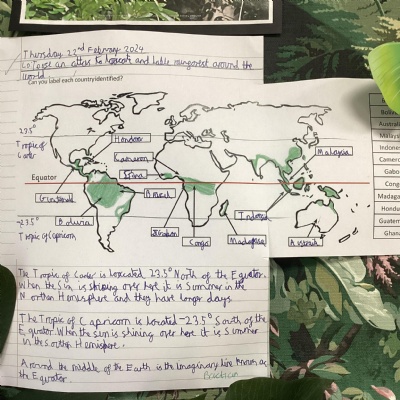 Thursday 22nd February 2024
LO: To use an atlas to locate and lable rainforest around the
World
Can you label each country identified?
23.5°
Tropic of
Cancer
Hondoras
Kameroon
Ghana
Malaysia
Equator
Brazil
Bolivia
Indonesia
-23.5°
Tropic of Capricorn
Gabon
Congo
Madagascar
Australia
Boliv
Austral
Malays
Indone
Camero
Gabo
Cong
Madaga
Hondu
Guatem
Ghan
The Tropic of Cancer is loacated 23.5° North of the Equator.
When the Sun is shining over here it is Summer in the
Northen Hemisphere and they have longer days.
The Tropic of Capricorn is located -23.5° South of the
Equator. When the sun is shining over here it is Summer
in the Southen Hemisphere.
Around the middle of the Earth is the imaginary line known as
the Equator.